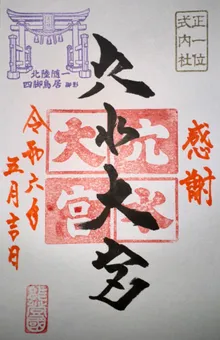 正一位
式内社
感謝
穴水大宮
穴水
大宮
北陸随一
四脚鳥居
令和六年
五月吉日
能登國